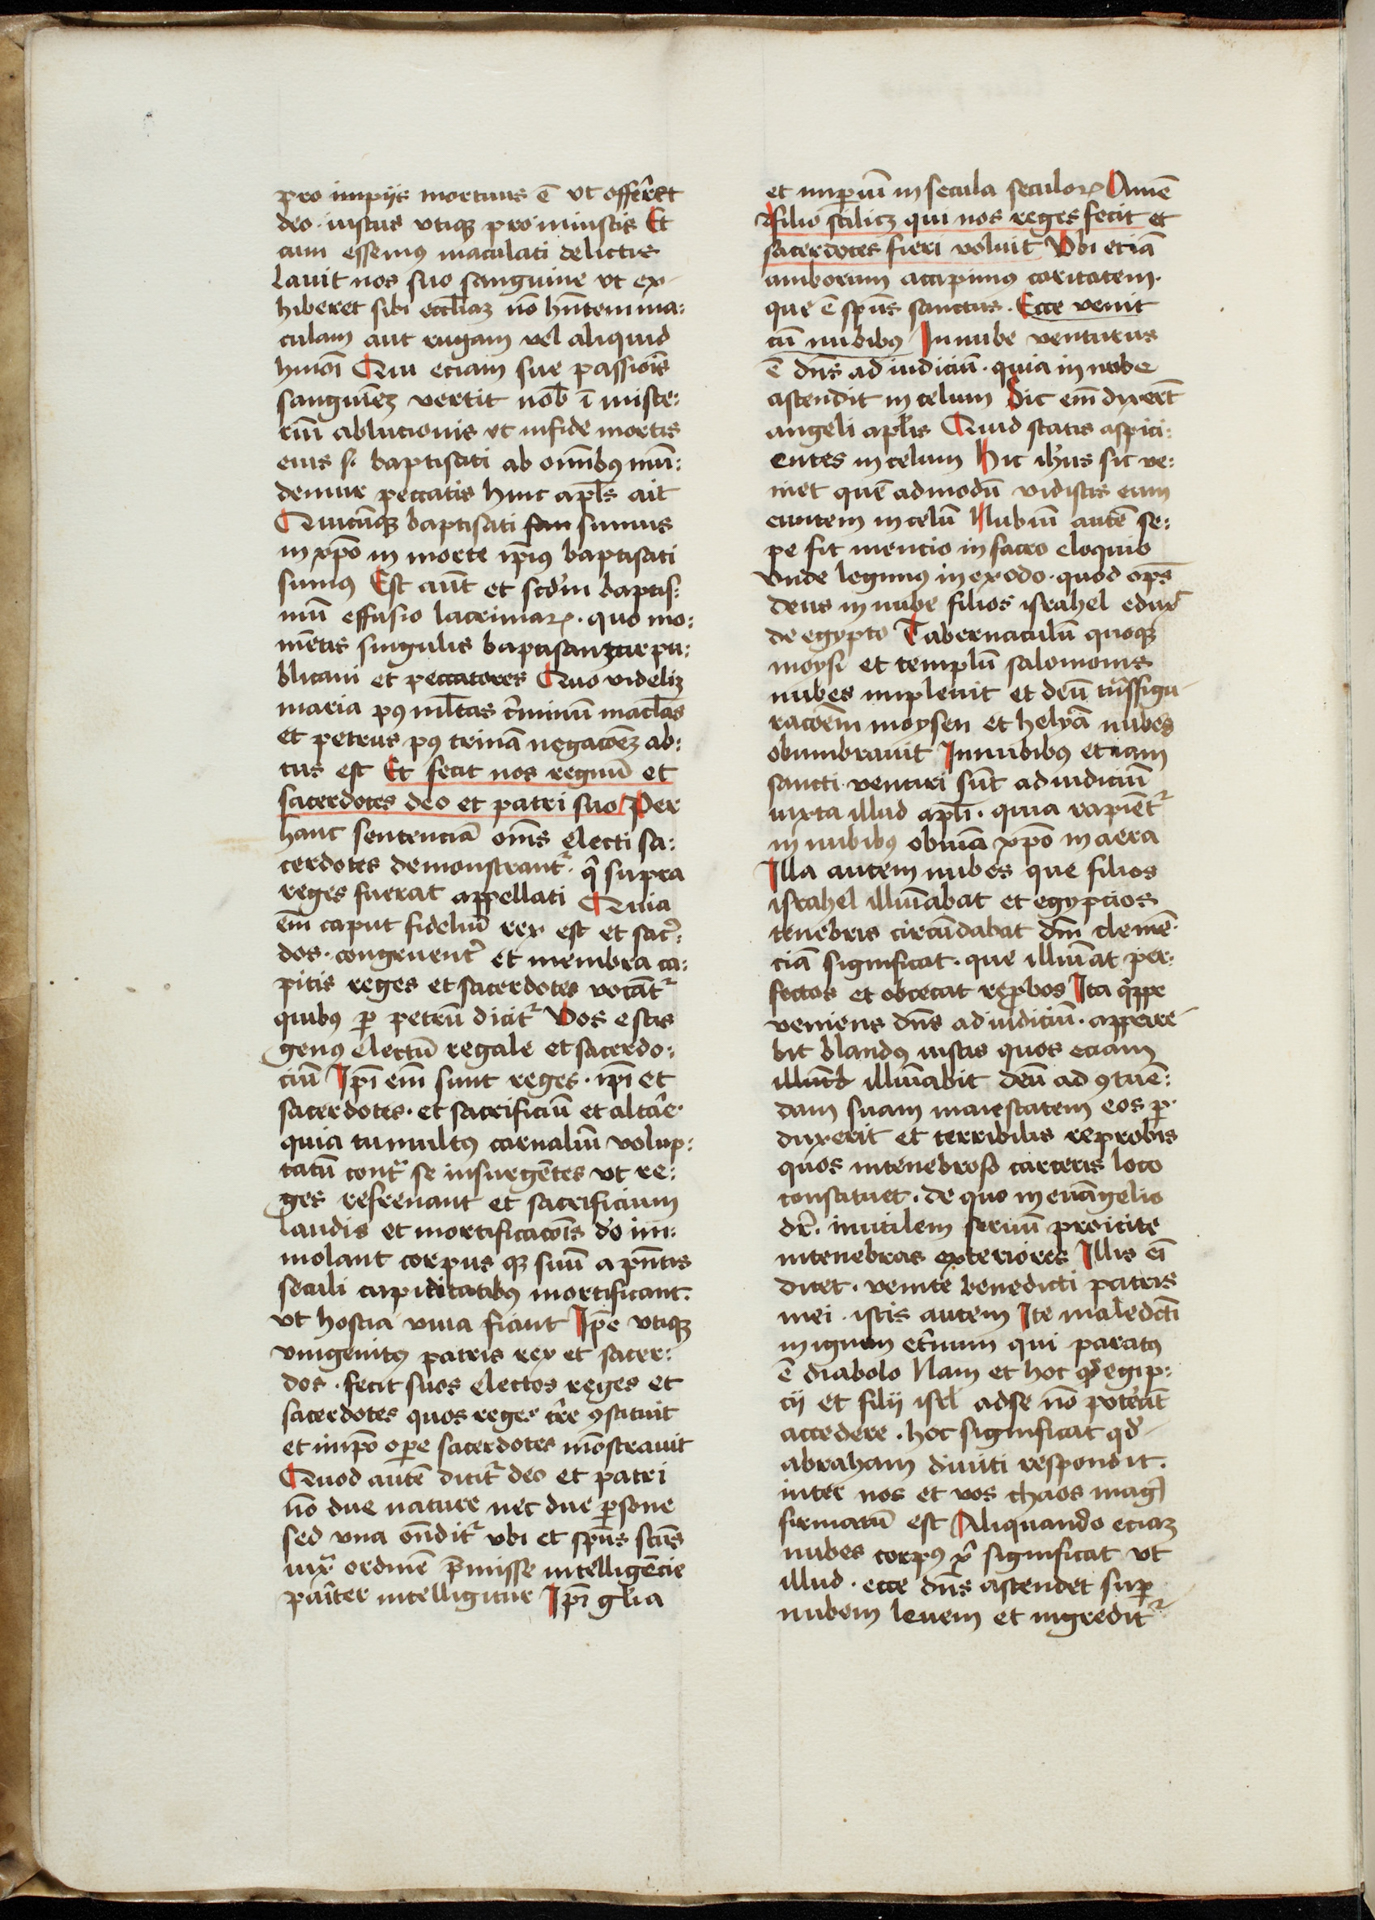 pro impijs mortuus ē vt offerret
deo · iustus vtiqꝫ pro iniustis Et
cum essemus maculati delictis
lauit nos suo sanguine vt ex
hiberet sibi eccl̄iaꝫ nō hn̄tem ma:
culam aut rugam vel aliquid
hmōi Qui eciam sue passiōis
sanguīeꝫ vertit nob̄ ī miste:
riū ablucionis vt in fide mortis
eius s· baptisati ab om̄ibꝰ mū:
demur peccatis hinc apl̄s ait
Quicūqꝫ baptisati sumus
in xp̄o in morte ip̄ius baptisati
sumꝰ Est aūt et scd̄m baptis:
mū effusio lacrimaꝝ · quo mo:
mētis singulis baptisantur pu:
blicani et peccatores Quo videlicꝫ
maria pꝰ ml̄tas c̄minū macl̄as
et petrus pꝰ trinā negacōeꝫ ab:
tus est Et fecit nos regnū et
sacerdotes deo et patri suo Per
hanc sentenciā om̄s electi sa:
cerdotes demonstrantᷣ · q̄ supra
reges fuerāt appellati Quia
em̄ caput fideliū rex est et sac̄:
dos · congruentᷣ et membra ca:
pitis reges et sacerdotes vocātᷣ
quibꝰ ꝑ petrū dicitᷣ Vos estis
genꝰ electū regale et sacerdo:
ciū Ip̄i em̄ sunt reges · ip̄i et
sacerdotes · et sacrificiū et altāe·
quia tumultꝰ carnaliū volup:
tatū contᷓ se insurgētes vt re:
ges refrenant et sacrificium
laudis et mortificacōis dō im:
molant corpus qꝫ suū a pn̄tis
seculi cupiditatibꝰ mortificant·
vt hostia viua fiant Ip̄e vtiqꝫ
vnigenitꝰ patris rex et sacer:
dos · fecit suos electos reges et
sacerdotes quos reges t̄re ꝯstituit
et in ip̄o oꝑe sacerdotes mōstrauit
Quod autē dicitᷣ deo et patri
nō due nature nec due ꝑsone
sed vna on̄ditᷣ vbi et sp̄us scūs
iuxᷓ ordinē p̄misse intelligēcie
pāiter intelligitur Ip̄i gl̄ia
et imꝑiū in secula seculoꝝ Amē
filio scilicꝫ qui nos reges fecit et
sacerdotes fieri voluit Vbi etiā
amborum accipimus caritatem·
que ē sp̄us sanctus · Ecce venit
cū nubibꝰ In nube venturus
ē dn̄s ad iudiciū · quia in nube
ascendit in celum Sic em̄ dixerūt
angeli apl̄is Quid statis aspici:
entes in celum Hic ih̄us sic ve:
niet quē admodū vidistis eum
euntem in celū Nubiū autē se:
pe fit mencio in sacro eloquio
vnde legimus in exodo · quod op̄s
deus in nube filios israhel eduxᷓ
de egypto Tabernaculū quoqꝫ
moysi et templū salomonis
nubes impleuit et deū tn̄sfigu
racōem moysen et helyā nubes
obumbrauit In nubibꝰ etiam
sancti venturi sūt ad iudiciū
iuxta illud apl̄i · quia rapiētᷣ
in nubibꝰ obuiā xp̄o in aera
Illa autem nubes que filios
israhel illuīabat et egypcios
tenebris circūdabat dn̄i clemē·
ciā significat · que illuīat per:
fectos et obcecat repbos Ita q̄ppe
veniens dn̄s ad iudiciū · appare
bit blandꝰ iustis quos eciam
illuīabit deū ad ꝯtuē:
dam suam maiestatem eos ꝑ·
duxerit et terribilis reprobis
quos in tenebroso carceris loco
constituet · de quo in euāngelio
dr̄ · inutilem seruū proicite
in tenebras exteriores Illis em̄
dicet · venite benedicti patris
mei · istis autem Ite maledicti
in ignem et̄num qui paratꝰ
ē diabolo Nam et hoc qd̄ egip:
cij et filij isrl̄ ad se nō poterāt
accedere · hoc significat qd̄
abraham diuiti respondit·
inter nos et vos chaos magᷓ
firmatū est Aliquando eciaꝫ
nubes corpꝰ xᷓ significat vt
illud · ecce dn̄s ascendet suꝑ
nubem leuem et ingreditᷣ